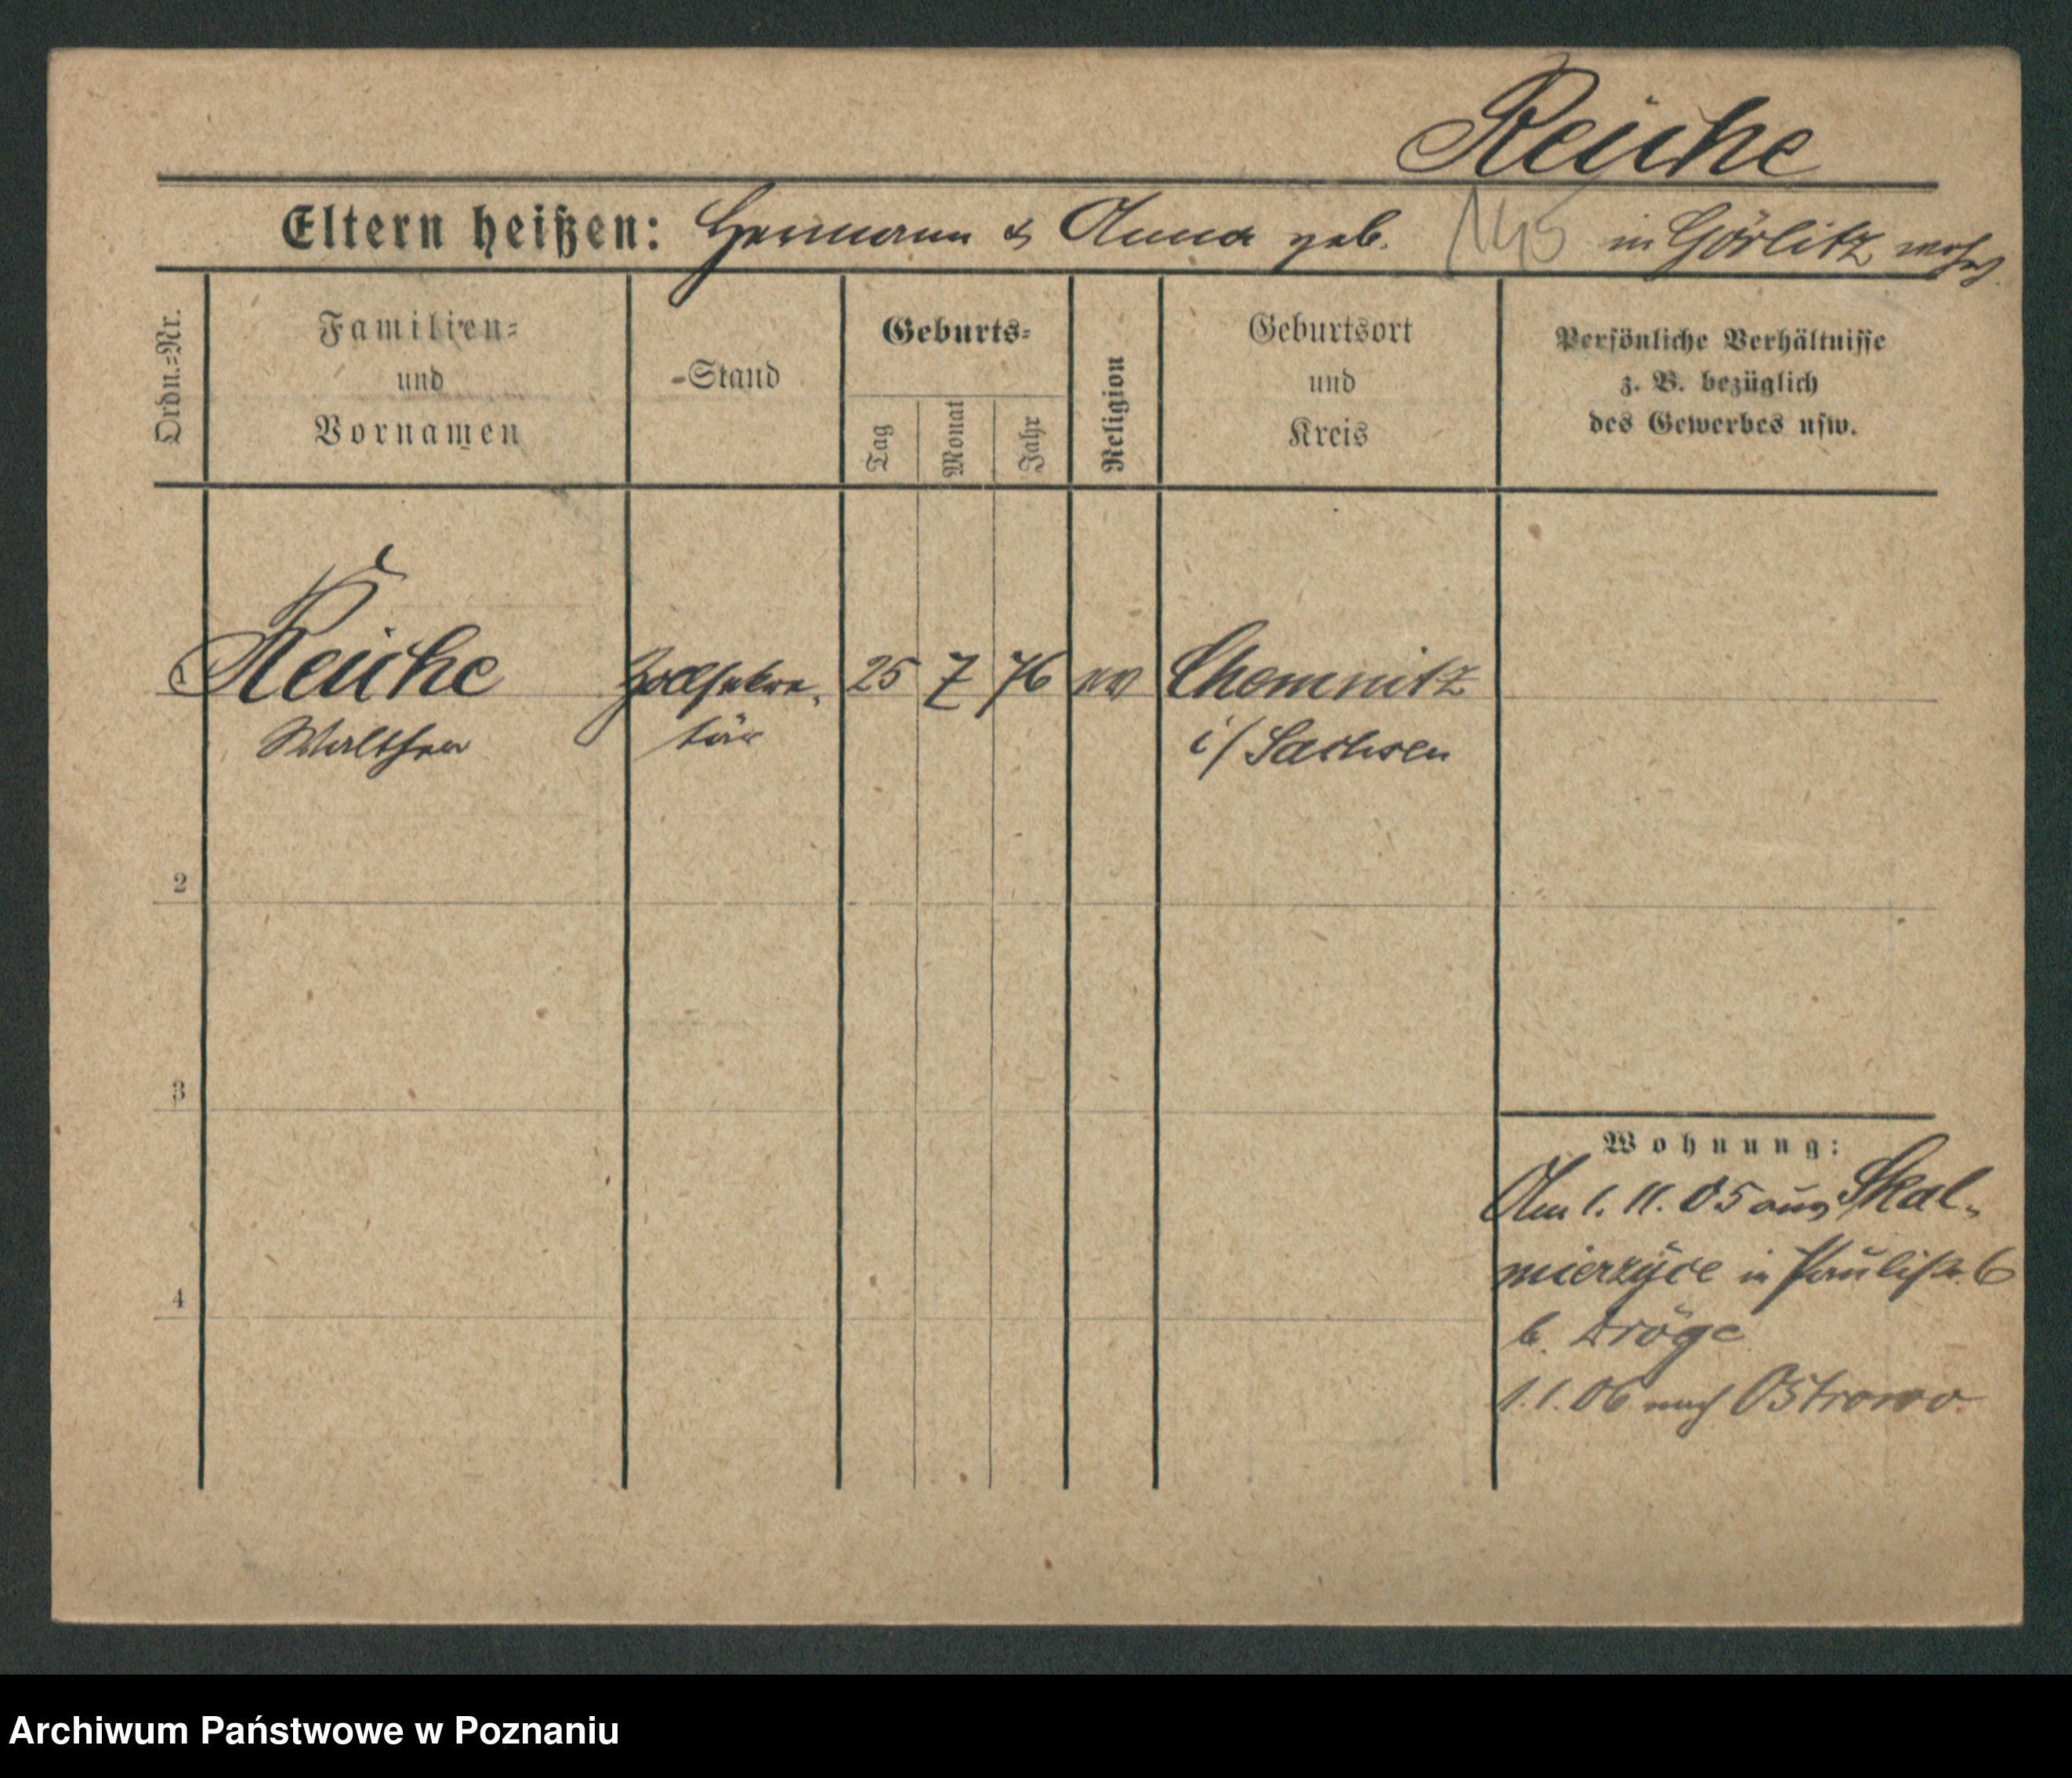 Reiche
Eltern heißen: Hermann & Anna geb. 145 in Görlitz wohnh.
Ordn.=Nr.
Familien=
und
Vornamen
Stand
Geburts=
Tag
Monat
Jahr
Religion
Geburtsort
und
Kreis
Persönliche Verhältnisse
z. B. bezüglich
des Gewerbes usw.
Reiche Zollsekre- 25 7 76 ev Chemnitz
Walther tär i/ Sachsen
2
3
4
Wohnung:
Am 1. 11. 05 aus Skal-
mierzyce in Paulistr. 6
b. Dröge
1. 1. 06 nach Ostrowo
Archiwum Państwowe w Poznaniu